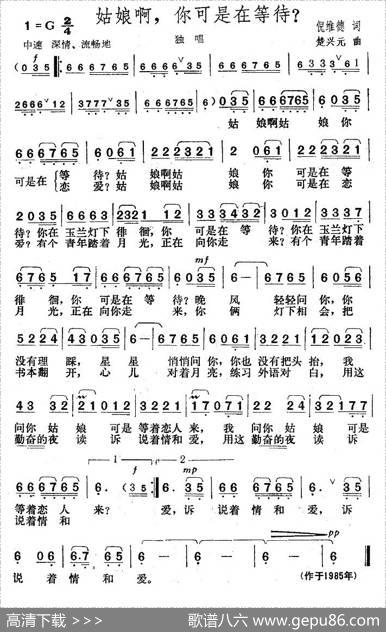 姑娘啊，你可是在等待?
1=G 2/4
倪维德 词
中速 深情、流畅地
独唱
楚兴元 曲
f
(035 666765 6666 35 666765 6333 61
2666 12 3777 35 666765 6) 035 666765 6035
姑 娘啊姑 娘你
666765 6061 222321 2 061 222321
可是在 等 待?姑 娘啊姑 娘你 可是在 等
恋 爱?姑 娘啊姑 娘你 可是在 恋
2035 6663 2321 12 333432 3012 3337
待?你在 玉兰灯下 徘徊,你 可是在 等 待?你在 玉兰灯下
爱?有个 青年踏着 月光,正在 向你走 来?有个 青年踏着
mf
6765 17 666765 6035 6— 6765 6056
徘 徊,你 可是在 等 待?晚 风 轻轻问 你,你
月 光,正在 向你走 来,你 俩 灯下相 会,把
5224 43035 6— 6765 6061 3221 12023
没有理 睬,星 星 悄悄问 你,你也 没有把头 抬,我
书本翻 开,心 儿 对着月 亮,练习 外语对 白,用这
43 32 21012 3221 17071 22 24 32177
问你 姑 娘 可是 等着恋 人来,我 问你 姑 娘 可是
勤奋的夜 读 诉 说着情 和爱,用这 勤奋的夜 读 诉
1 2
f mp
666765 6·(35 6·35 66 6765 6·35
等着恋 人 来? 爱,诉 说着 情 和 爱,诉
说着情 和
pp
6 06 6·7 65 6— 6— 6— 6—
说 着 情 和 爱。
(作于1985年)
高清下载 >>>
歌谱八六 www.gepu86.com